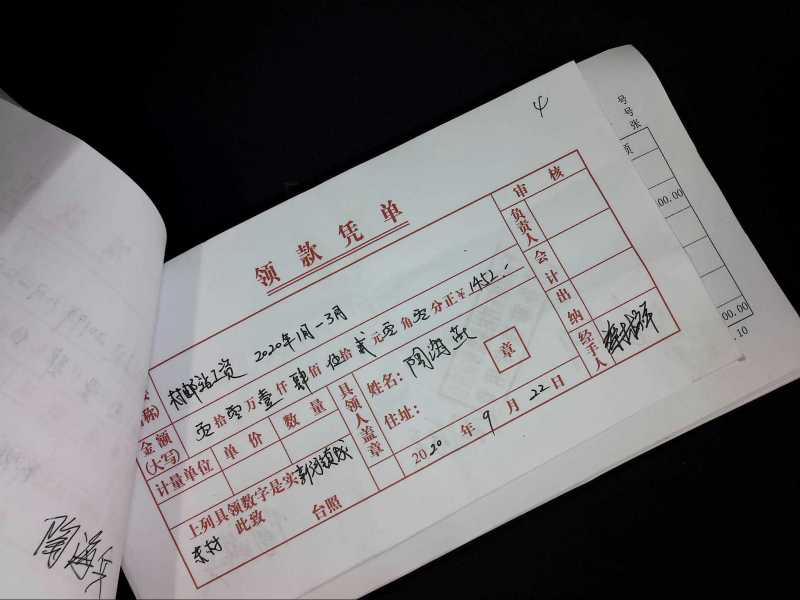 4
领款凭单
审核
村邮站工资 2020年1月-3月
负责人
金额
(大写)
零拾零万壹仟肆佰伍拾贰元零角零分正￥1452.-
会计
计量单位
单价
数量
具领人盖章
姓名：陶海燕
章
住址：
出纳
经手人
2020年9月22日
上列具领数字是实
此致
台照
东村
号
号
张
页
00.00
00.00
.10
陶海